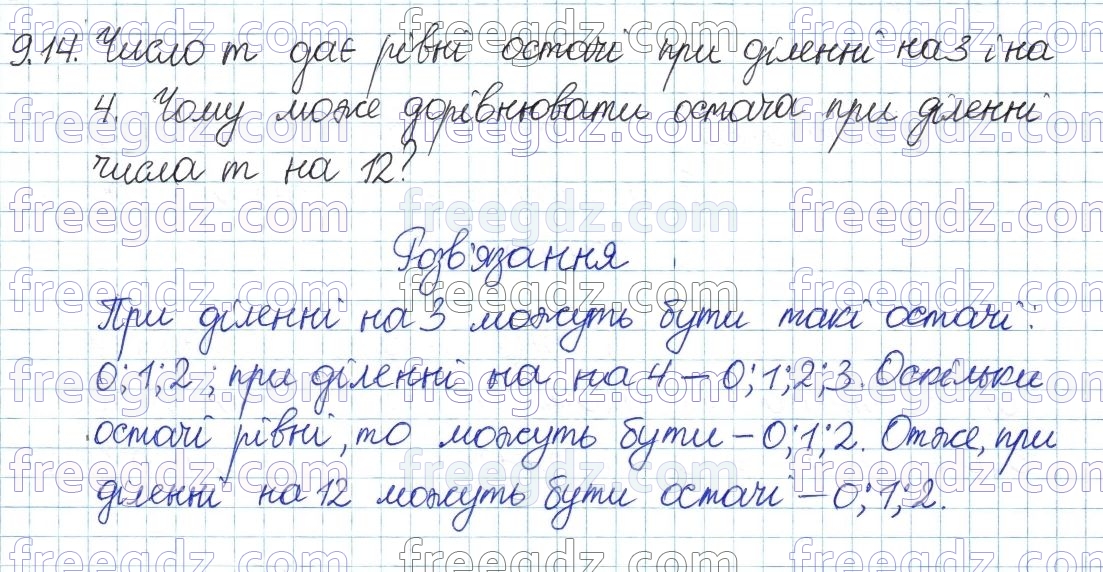 9.14. Число m дає рівні остачі при діленні на 3 і на
4. Чому може дорівнювати остача при діленні
числа m на 12?
Розв'язання
При діленні на 3 можуть бути такі остачі:
0; 1; 2; при діленні на на 4 – 0; 1; 2; 3. Оскільки
остачі рівні, то можуть бути – 0; 1; 2. Отже, при
діленні на 12 можуть бути остачі – 0; 1; 2.
freegdz.com